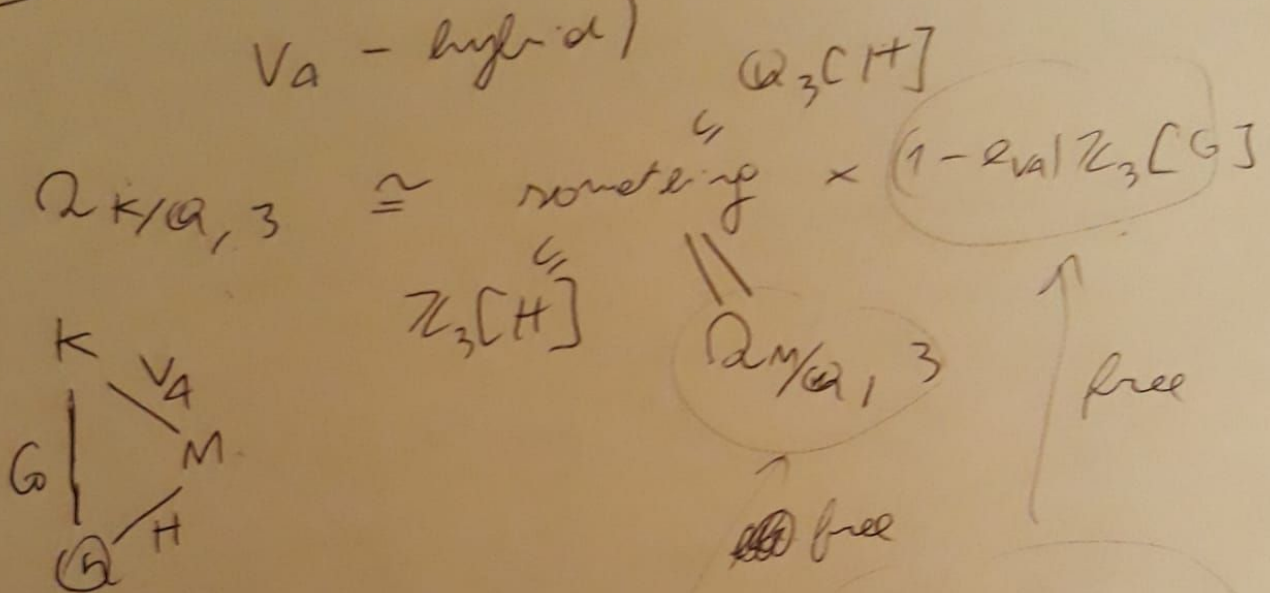 V₄ - hybrid)
ℚ₃[H]
⊊
Ω K/ℚ, 3 ≅ someteing × (1 - e_V₄) ℤ₃[G]
⊊
ℤ₃[H]
||
Ω M/ℚ, 3
free
free
K
V₄
G
M
H
ℚ